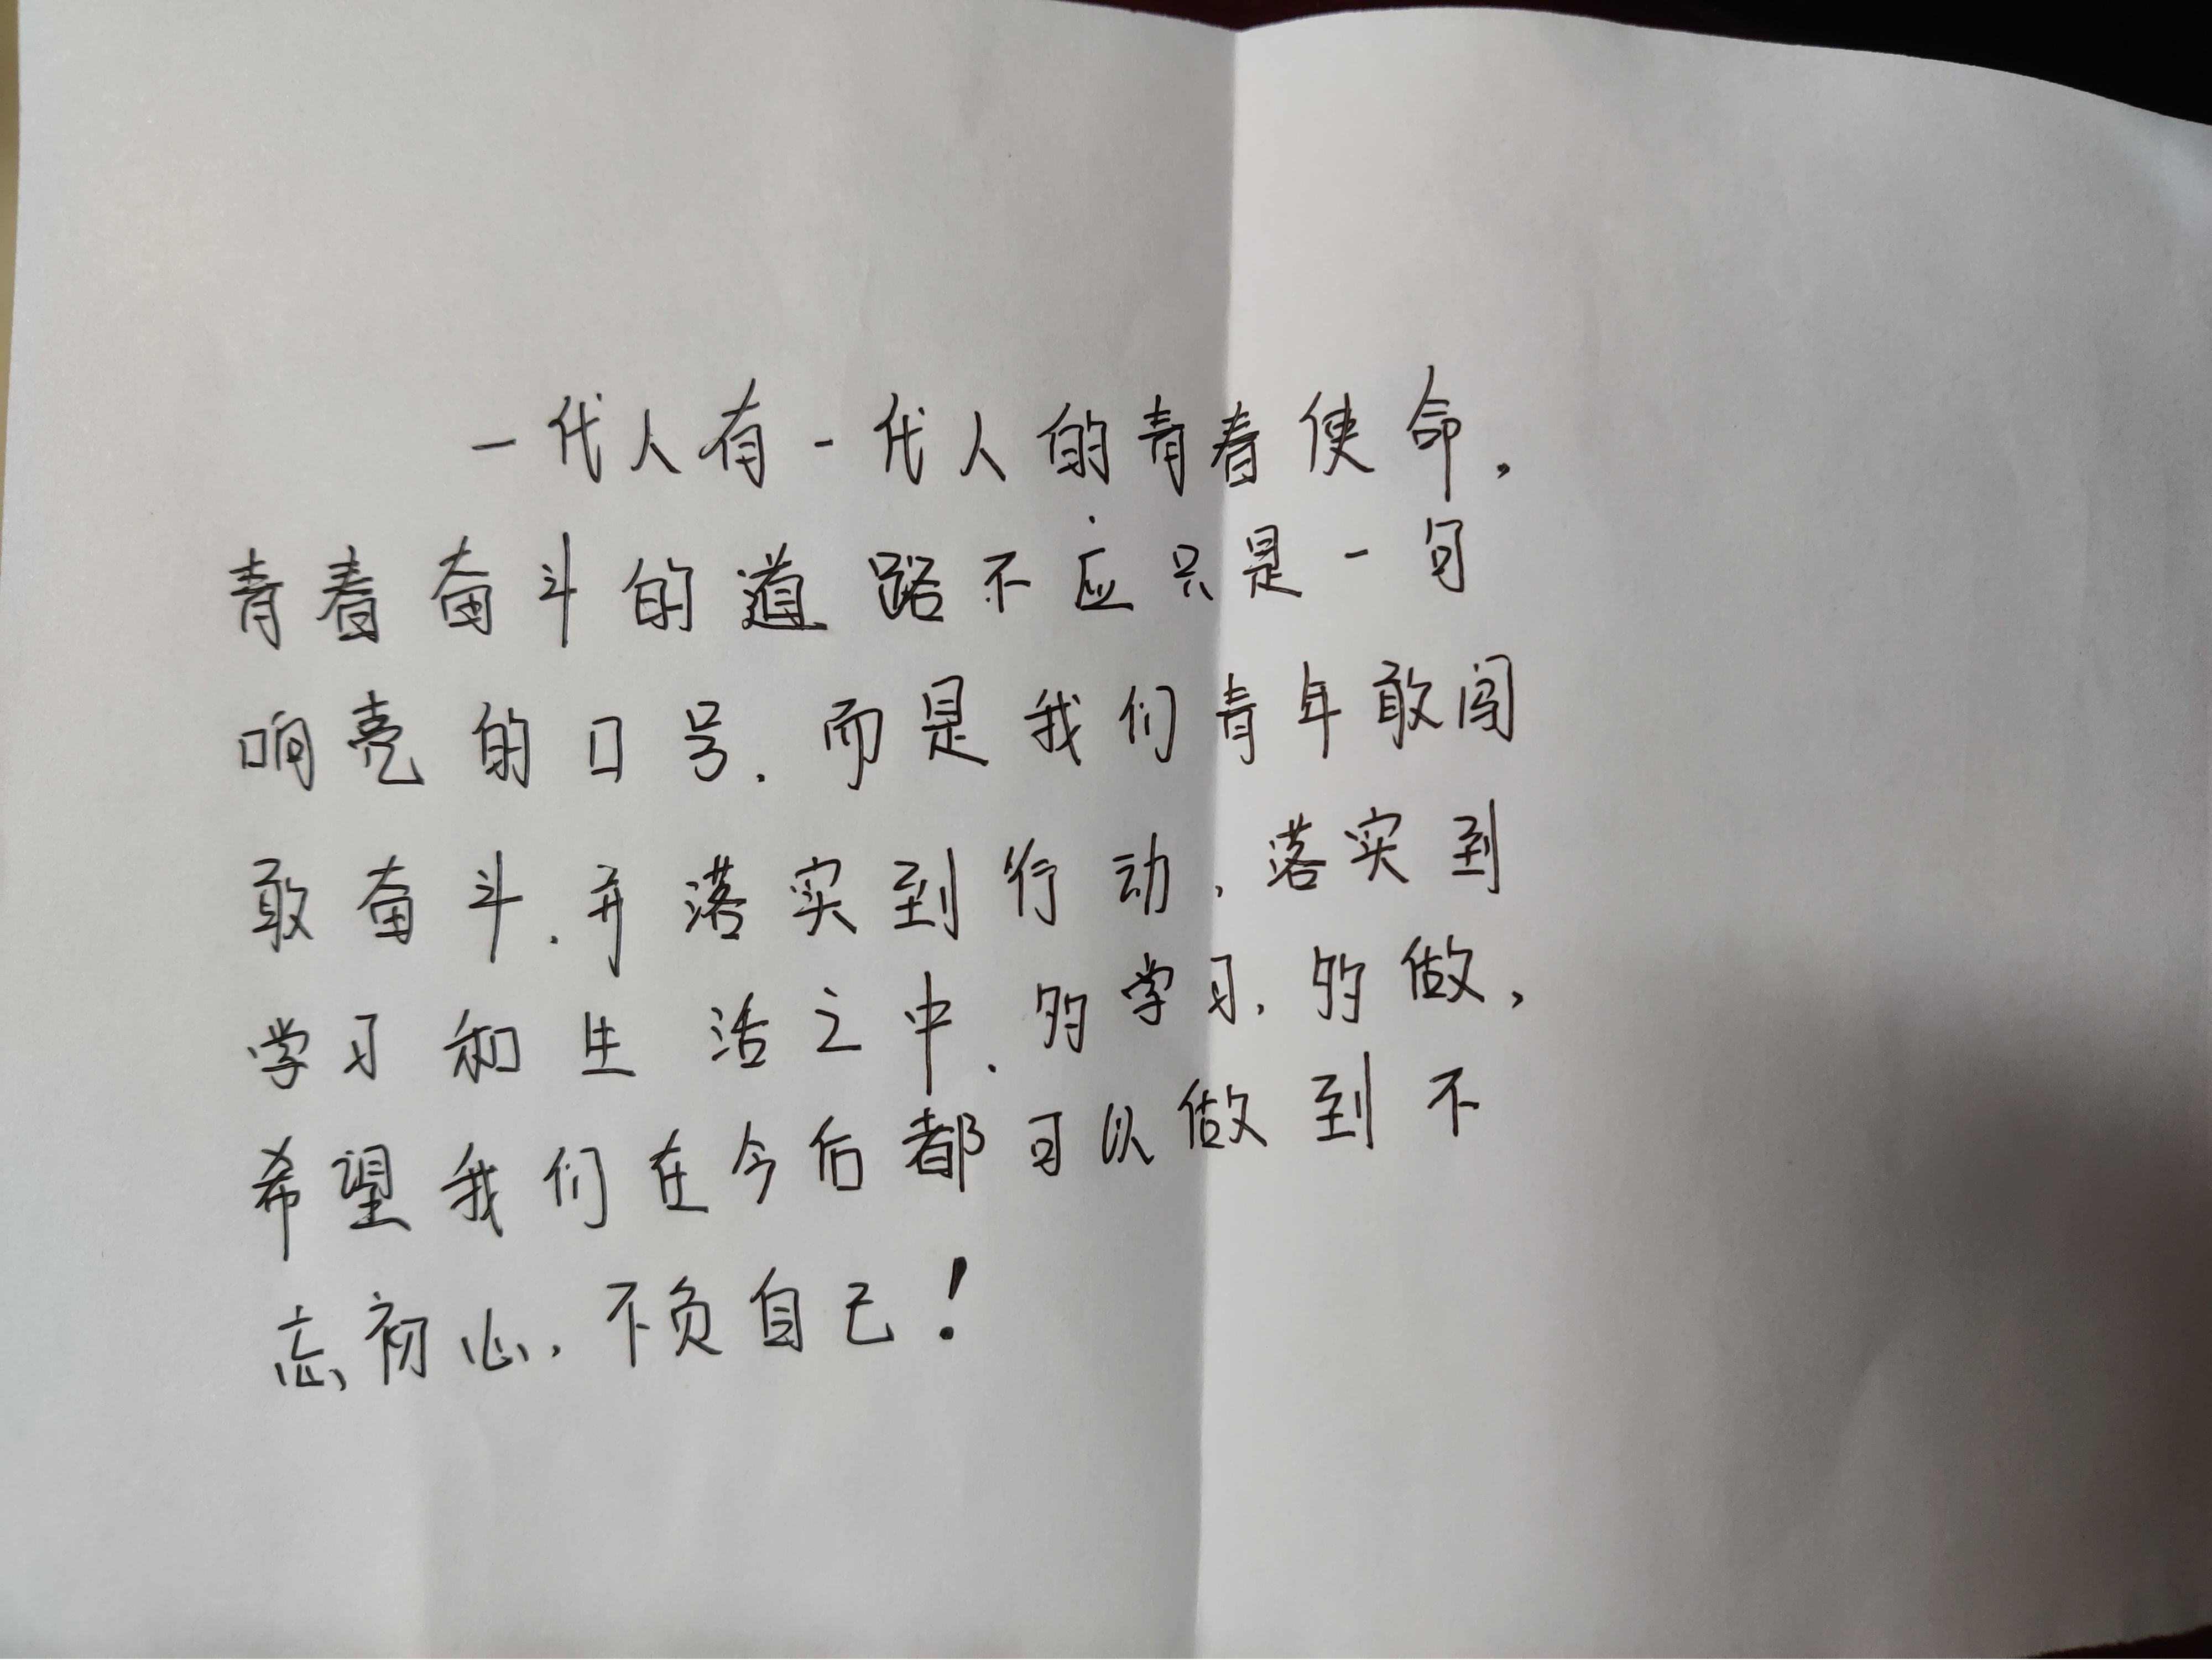 一代人有一代人的青春使命，
青春奋斗的道路不应只是一句
响亮的口号.而是我们青年敢闯
敢奋斗.并落实到行动、落实到
学习和生活之中.多学习.多做，
希望我们在今后都可以做到不
忘初心.不负自己！